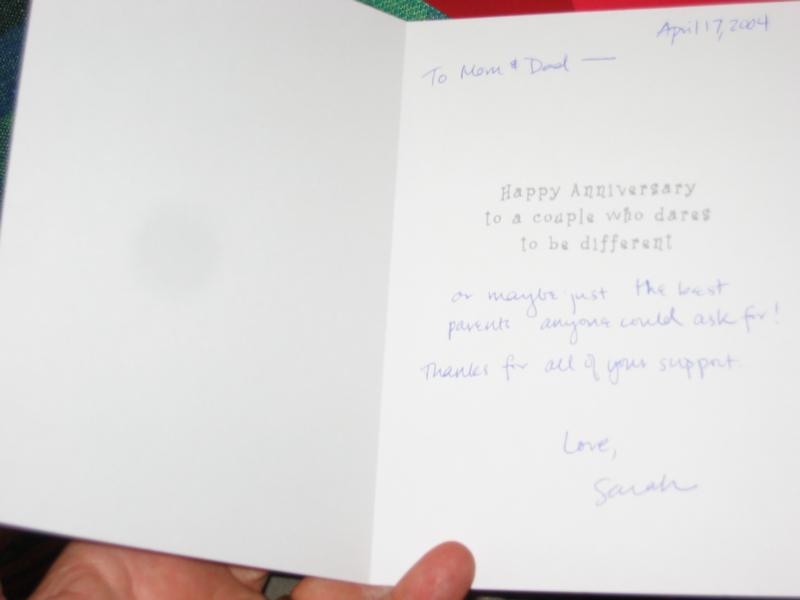 April 17, 2004
To Mom & Dad —
Happy Anniversary
to a couple who dares
to be different
or maybe just the best
parents anyone could ask for!
Thanks for all of your support.
Love,
Sarah